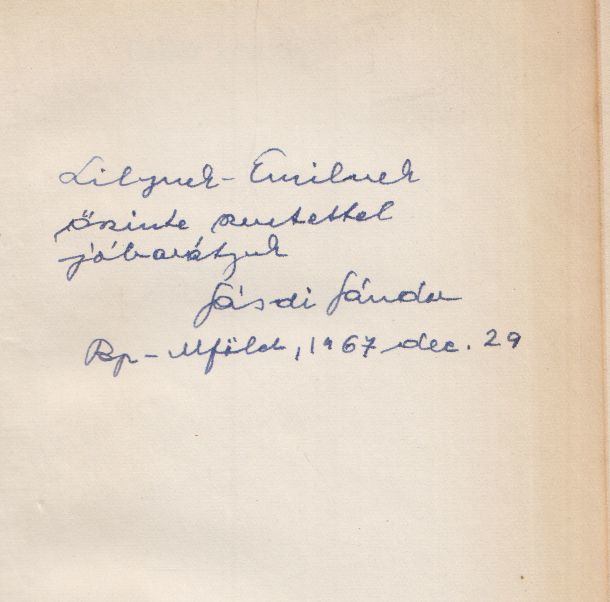 Lilynek - Emilnek
őszinte szeretettel
jóbarátjuk
Sásdi Sándor
Bp - Mföld, 1967 dec. 29